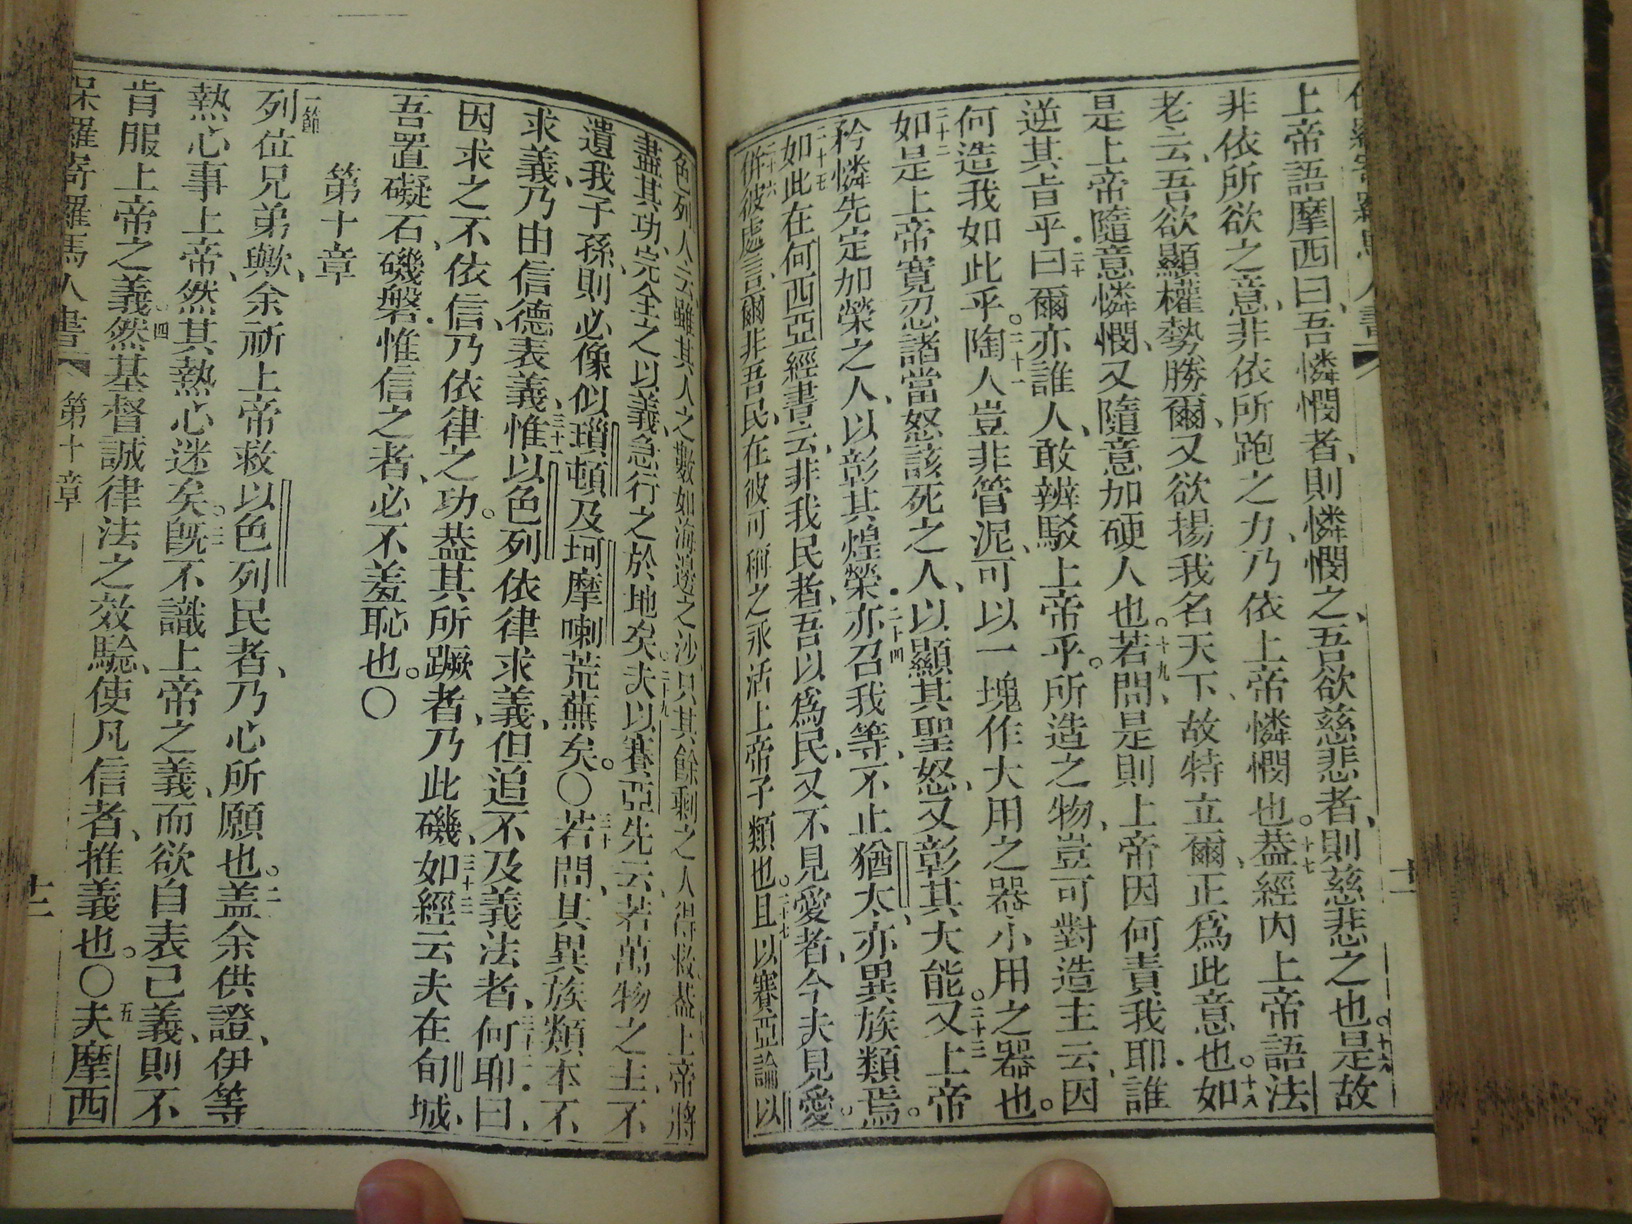 保羅寄羅馬人書
上帝語摩西曰、吾憐憫者、則憐憫之、吾欲慈悲者、則慈悲之也。十六是故
非依所欲之意、非依所跑之力、乃依上帝憐憫也。十七蓋經內上帝語法
老云、吾欲顯權勢勝爾、又欲揚我名天下、故特立爾、正為此意也。十八如
是上帝隨意憐憫、又隨意加硬人也。十九若問是則上帝因何責我耶、誰
逆其旨乎。二十曰爾亦誰人、敢辨駁上帝乎。所造之物、豈可對造主云、因
何造我如此乎。二十一陶人豈非管泥、可以一塊作大用之器小用之器也。
二十二如是上帝寬忍諸當怒該死之人、以顯其聖怒、又彰其大能。二十三又上帝
矜憐先定加榮之人、以彰其煌榮。二十四亦召我等、不止猶太、亦異族類焉。
二十五如此在何西亞經書云、非我民者、吾以為民、又不見愛者、今夫見愛。
二十六併彼處言爾非吾民、在彼可稱之永活上帝子類也。二十七且以賽亞論以
色列人云、雖其人之數如海邊之沙、只其餘剩之人得救、蓋上帝將
盡其功、完全之以義、急行之於地矣。二十九夫以賽亞先云、若萬物之主、不
遺我子孫、則必像似瑣頓及坷摩喇荒蕪矣。〇三十若問、其異族類本不
求義、乃由信德表義、三十一惟以色列依律求義、但追不及義法者、何耶。三十二曰、
因求之不依信、乃依律之功。蓋其所蹶者、乃此磯、三十三如經云、夫在旬城、
吾置礙石、磯磐、惟信之者、必不羞恥也。〇
第十章
一節列位兄弟歟、余祈上帝救以色列民者、乃心所願也。二蓋余供證、伊等
熱心事上帝、然其熱心迷矣。三既不識上帝之義、而欲自表己義、則不
肯服上帝之義。四然基督誠律法之效驗、使凡信者、推義也。〇五夫摩西
保羅寄羅馬人書 第十章 十二